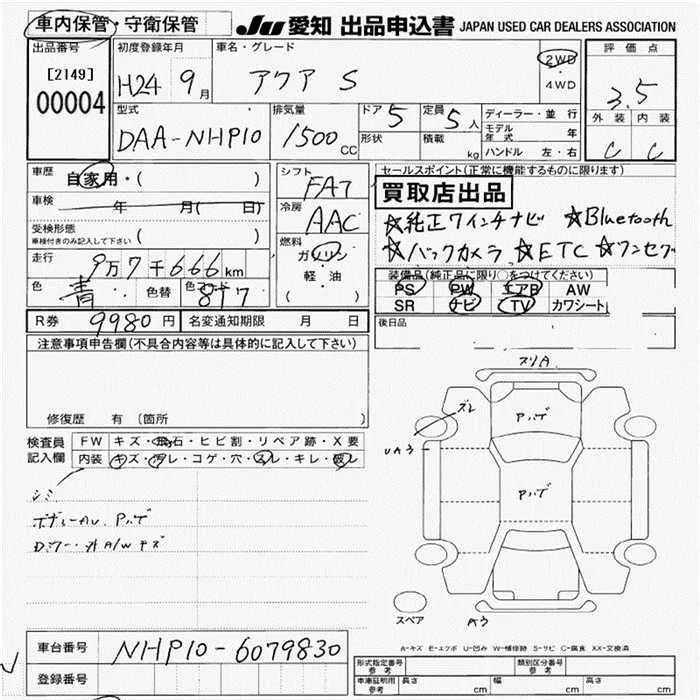 車内保管・守衛保管
JU 愛知 出品申込書 JAPAN USED CAR DEALERS ASSOCIATION
出品番号
[2149]
00004
初度登録年月
H24 9月
車名・グレード
アクア S
2WD
・
4WD
評価点
3.5
外装 内装
C C
型式
DAA-NHP10
排気量
1500 CC
ドア 5
定員 5人
形状
積載 kg
ディーラー・並行
モデル年式 年
ハンドル 左・右
車歴
自家用・( )
車検 年 月( 日)
受検形態
車検付きのみ記入して下さい ( )
走行
9万7千666km
色 青 色替 色コード 8T7
シフト
FAT
冷房
AAC
燃料
ガソリン
・
軽・油
( )
セールスポイント(正常に機能するものに限ります)
買取店出品
☆純正ワインチナビ ☆Bluetooth
☆バックカメラ ☆ETC ☆ワンセグ
装備品(純正品に限り○をつけてください)
PS PW エアB AW
SR ナビ TV カワシート
後日品
R券 9980円 名変通知期限 月 日
注意事項申告欄(不具合内容等は具体的に記入して下さい)
修復歴 有 (箇所 )
検査員記入欄
FW キズ・飛石・ヒビ割・リペア跡・X要
内装 キズ・汚レ・コゲ・穴・スレ・キレ・破レ
シミ
ボディーAU. Pハゲ
Dミラー・外A/Wキズ
スリA
ズレ
Pハゲ
UA3
Pハゲ
A3
スペア
A-キズ E-エクボ U-凹み W-補修跡 S-サビ C-腐食 XX-交換済
車台番号 NHP10-6079830
登録番号
形式指定番号 参考
類別区分番号 参考
車庫証明用 参考 長さ cm 幅 cm 高さ cm